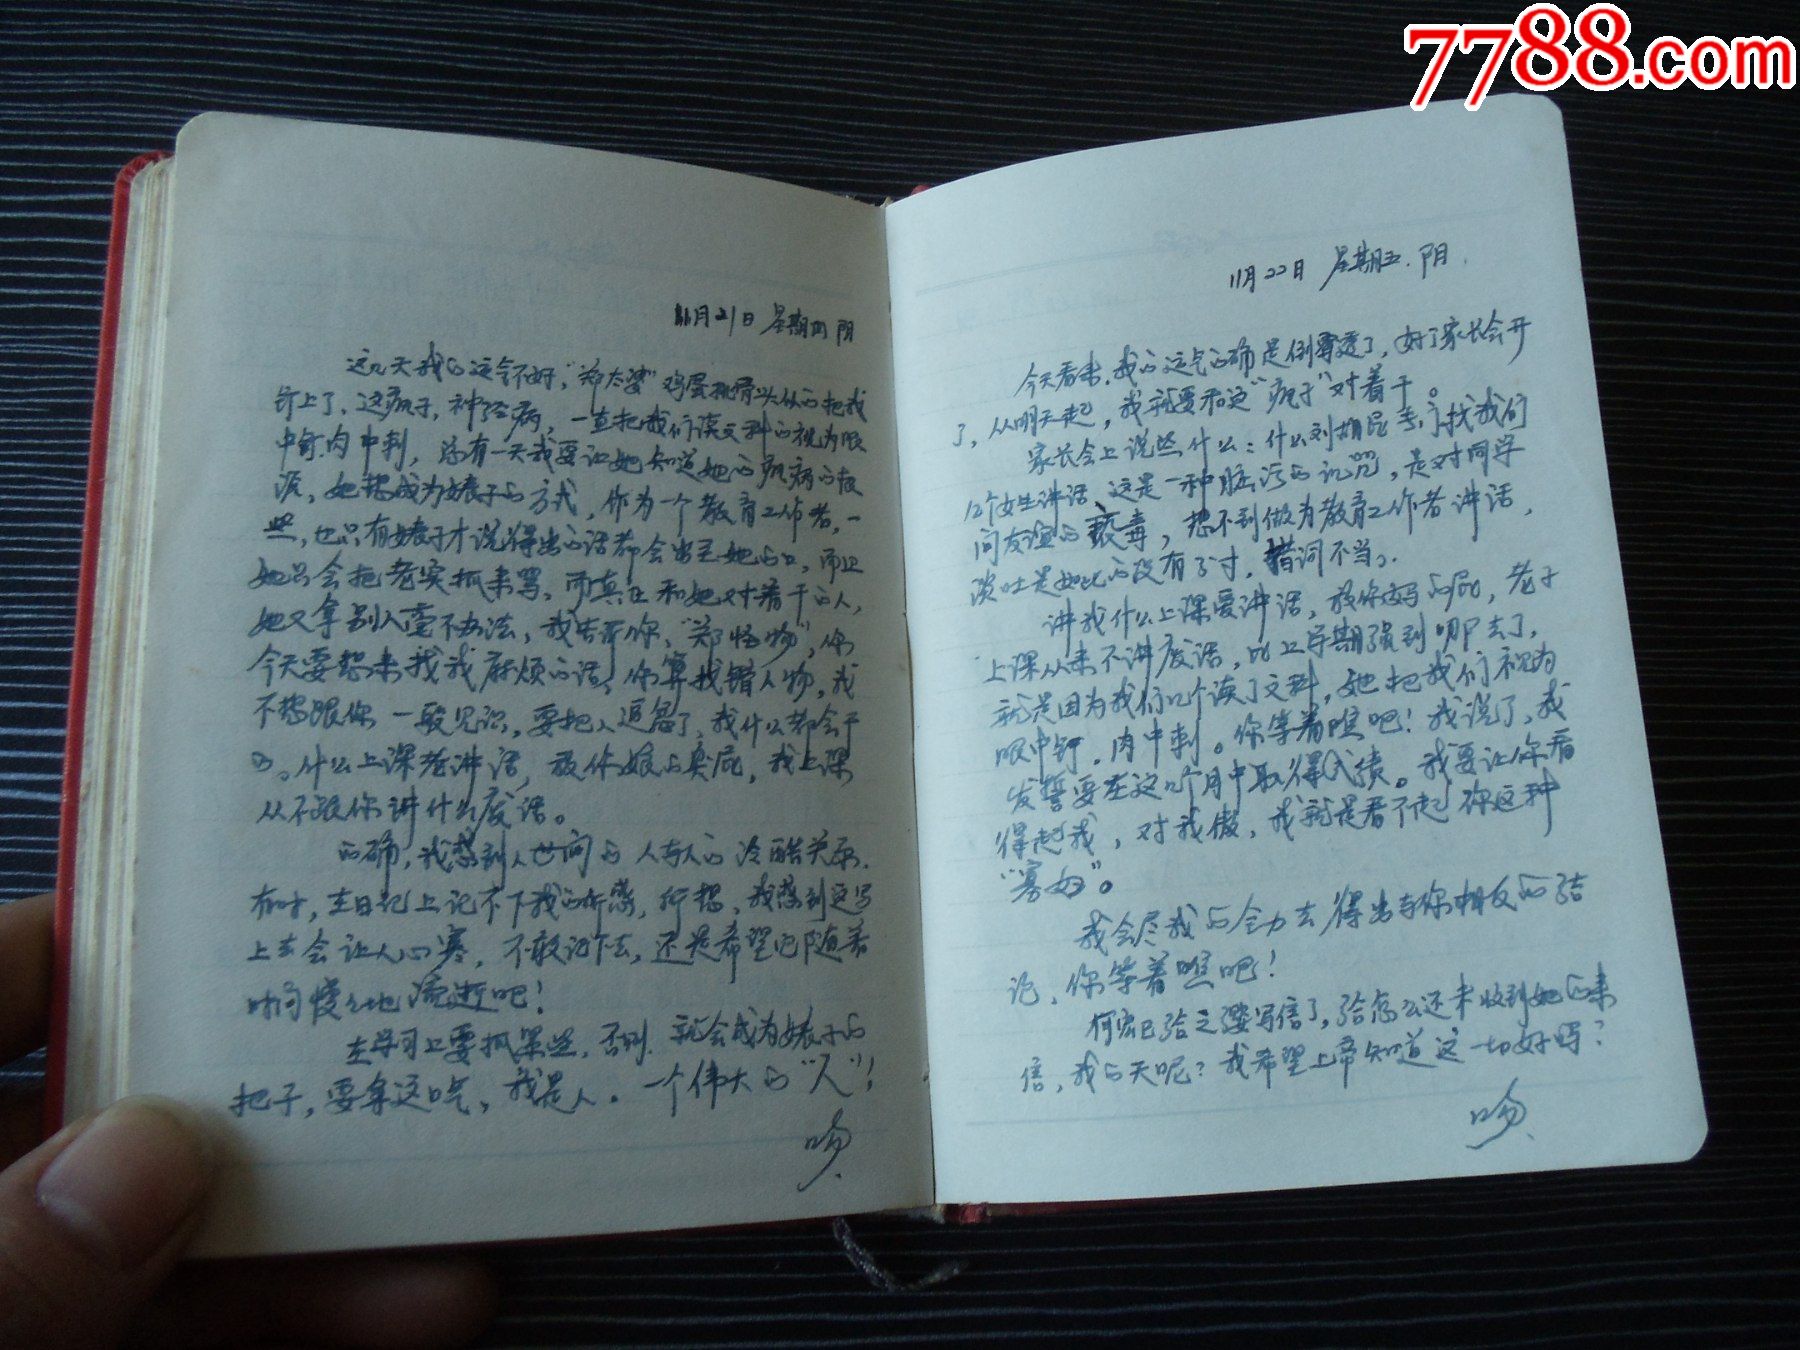 7788.com
11月21日 星期四 阴
这几天我的运气不好，"郑太婆"鸡蛋挑骨头似的把我
钉上了，这疯子，神经病，一直把我们读文科的视为眼
中钉，肉中刺，总有一天我要让她知道她的疯病的根
源，她想成为婊子的方式，作为一个教育工作者，一
些，也只有婊子才说得出的话都会出至她的口，而且
她只会把老实抓来骂，而真正和她对着干的人，
她又拿别人毫不办法，我告诉你，"郑怪物"，你
今天要想来找我麻烦的话，你算找错人物，我
不想跟你一般见识，要把人逼急了，我什么都会干
的。什么上课老讲话，放你娘的臭屁，我上课
从不跟你讲什么废话。
的确，我感到人世间的人与人的冷酷关系，
有时，在日记上记不下我的所感，所想，我感到这写
上去会让人心寒，不敢记下去，还是希望它随着
时间慢慢地流逝吧！
在学习上要抓紧些，否则，就会成为婊子的
把子，要拿这口气，我是人。一个伟大的"人"！
吻
11月22日 星期五．阴．
今天看来，我的运气的确是倒霉透了，好了家长会开
了，从明天起，我就要和这"疯子"对着干。
家长会上说些什么：什么刘期民专门找我们
几个女生讲话，这是一种脏污的诅咒，是对同学
间友谊的亵毒，想不到做为教育工作者讲话，
谈吐是如此的没有了寸，措词不当。
讲我什么上课爱讲话，放你妈的屁，老子
上课从来不讲废话，比上学期强到哪去了，
就是因为我们几个读了文科，她把我们视为
眼中钉，肉中刺。你等着瞧吧！我说了，我
发誓要在这几个月中取得成绩。我要让你看
得起我，对我傲，我就是看不起你这种
"寡妇"。
我会尽我的全力去得出与你相反的结
论，你等着瞧吧！
何宏已给之莹写信了，给怎么还未收到她的来
信，我的天呢？我希望上帝知道这一切好吗？
吻